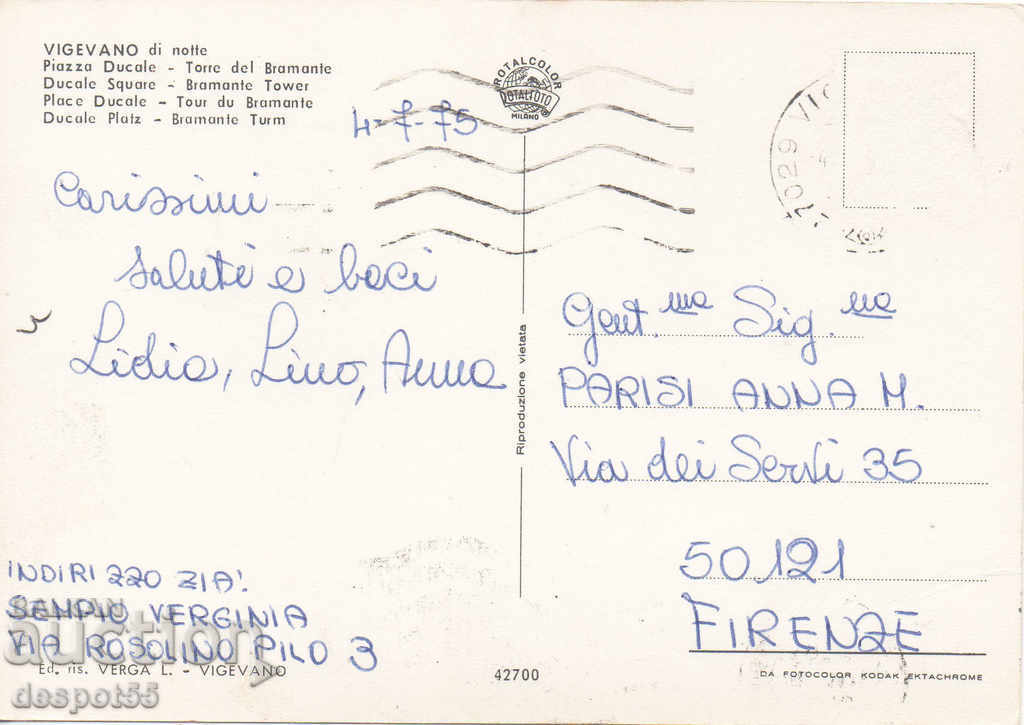 VIGEVANO di notte
Piazza Ducale - Torre del Bramante
Ducale Square - Bramante Tower
Place Ducale - Tour du Bramante
Ducale Platz - Bramante Turm
ROTALCOLOR
ROTALFOTO
MILANO
4-7-75
Carissimi
saluti e baci
Lidia, Lino, Anna
INDIRIZZO ZIA:
SEMPIO VERGINIA
VIA ROSOLINO PILO 3
Ed. ris. VERGA L. - VIGEVANO
42700
Riproduzione vietata
Gent.ma Sig.na
PARISI ANNA M.
Via dei Servi 35
50121
FIRENZE
DA FOTOCOLOR KODAK EKTACHROME
auction
despot55